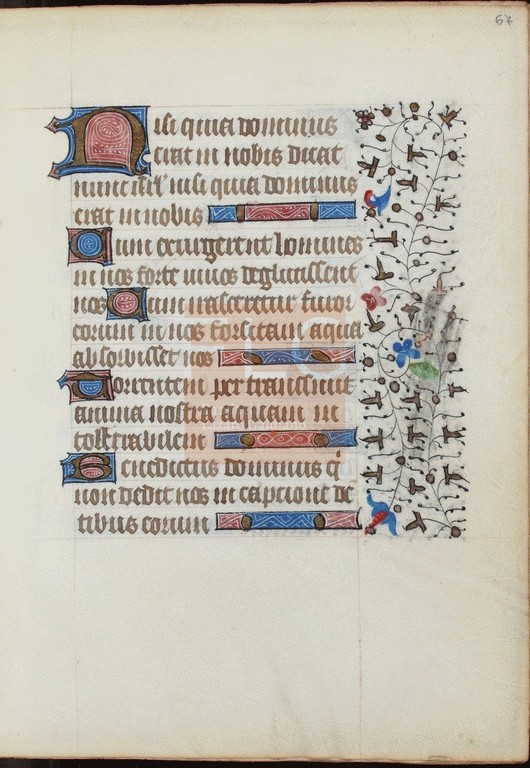 67
Nisi quia dominus
erat in nobis dicat
nunc isrl' nisi quia dominus
erat in nobis
Cum exurgerent homines
in nos forte vivos deglutissent
nos Cum irasceretur furor
eorum in nos forsitam aqua
absorbisset nos
Torrentem pertransivit
anima nostra aquam in
tollerabilem
Benedictus dominus q'
non dedit nos in captione dē
tibus eorum